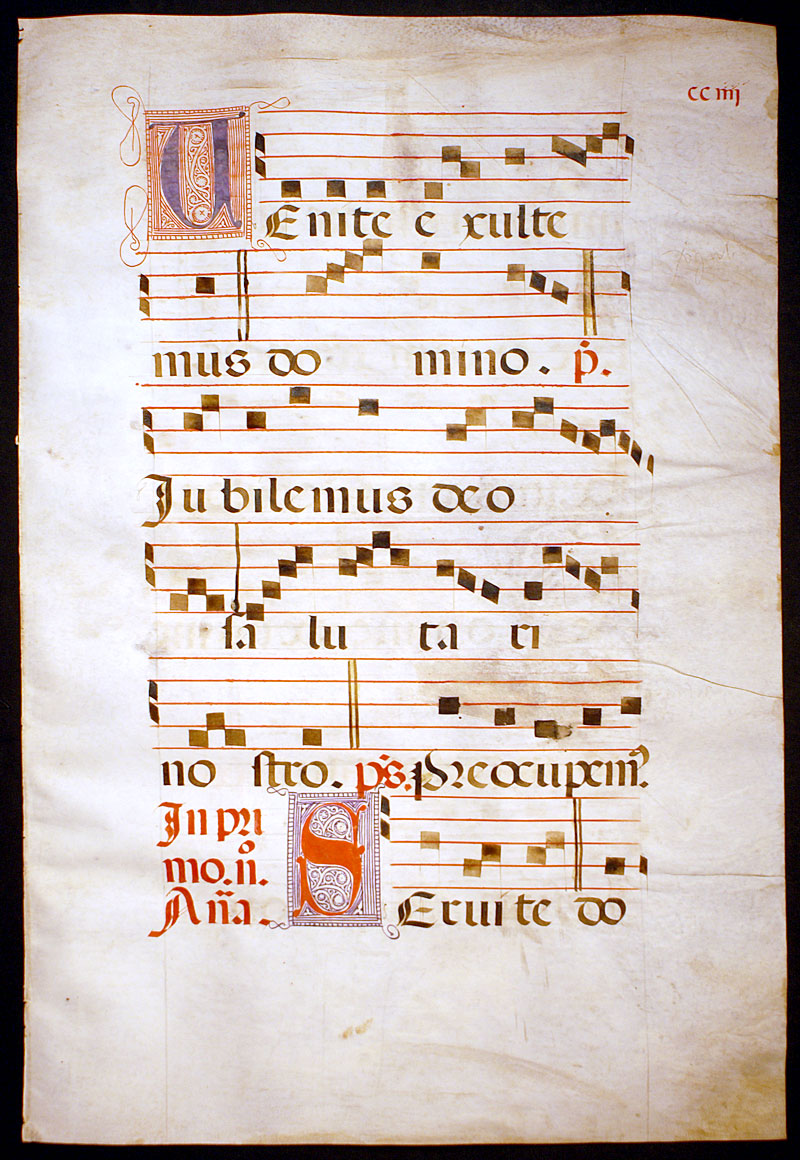 CC iiij
UEnite e xulte
mus do mino. p̄.
Ju bilemus deo
sa lu ta ri
no stro. p̄s. Preocupem9
In pri
mo. n̊.
Aña. SEruite do